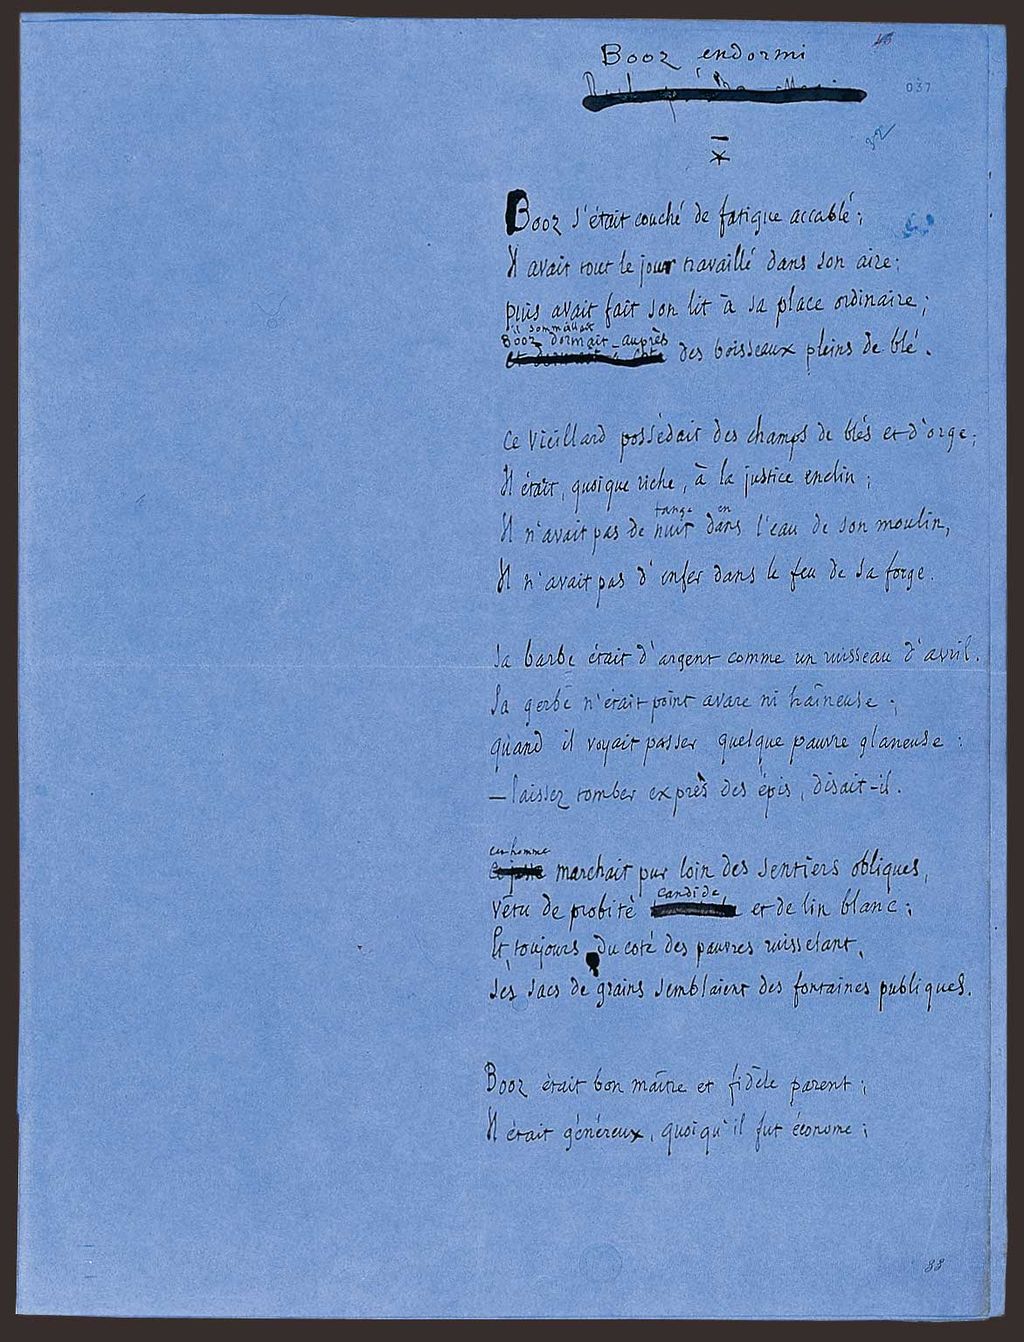 Booz endormi
43
037
32
Booz s'était couché de fatigue accablé ;
Il avait tout le jour travaillé dans son aire ;
puis avait fait son lit à sa place ordinaire ;
il sommeillait
Booz dormait auprès
des boisseaux pleins de blé.
Ce vieillard possédait des champs de blés et d'orge ;
Il était, quoique riche, à la justice enclin ;
fange en
Il n'avait pas de nuit dans l'eau de son moulin,
Il n'avait pas d'enfer dans le feu de sa forge.
Sa barbe était d'argent comme un ruisseau d'avril.
Sa gerbe n'était point avare ni haineuse ;
quand il voyait passer quelque pauvre glaneuse :
— laissez tomber exprès des épis, disait-il.
cet homme
marchait pur loin des sentiers obliques,
candide
vêtu de probité et de lin blanc ;
Et, toujours du coté des pauvres ruisselant,
ses sacs de grains semblaient des fontaines publiques.
Booz était bon maître et fidèle parent ;
Il était généreux, quoiqu'il fut économe ;
33